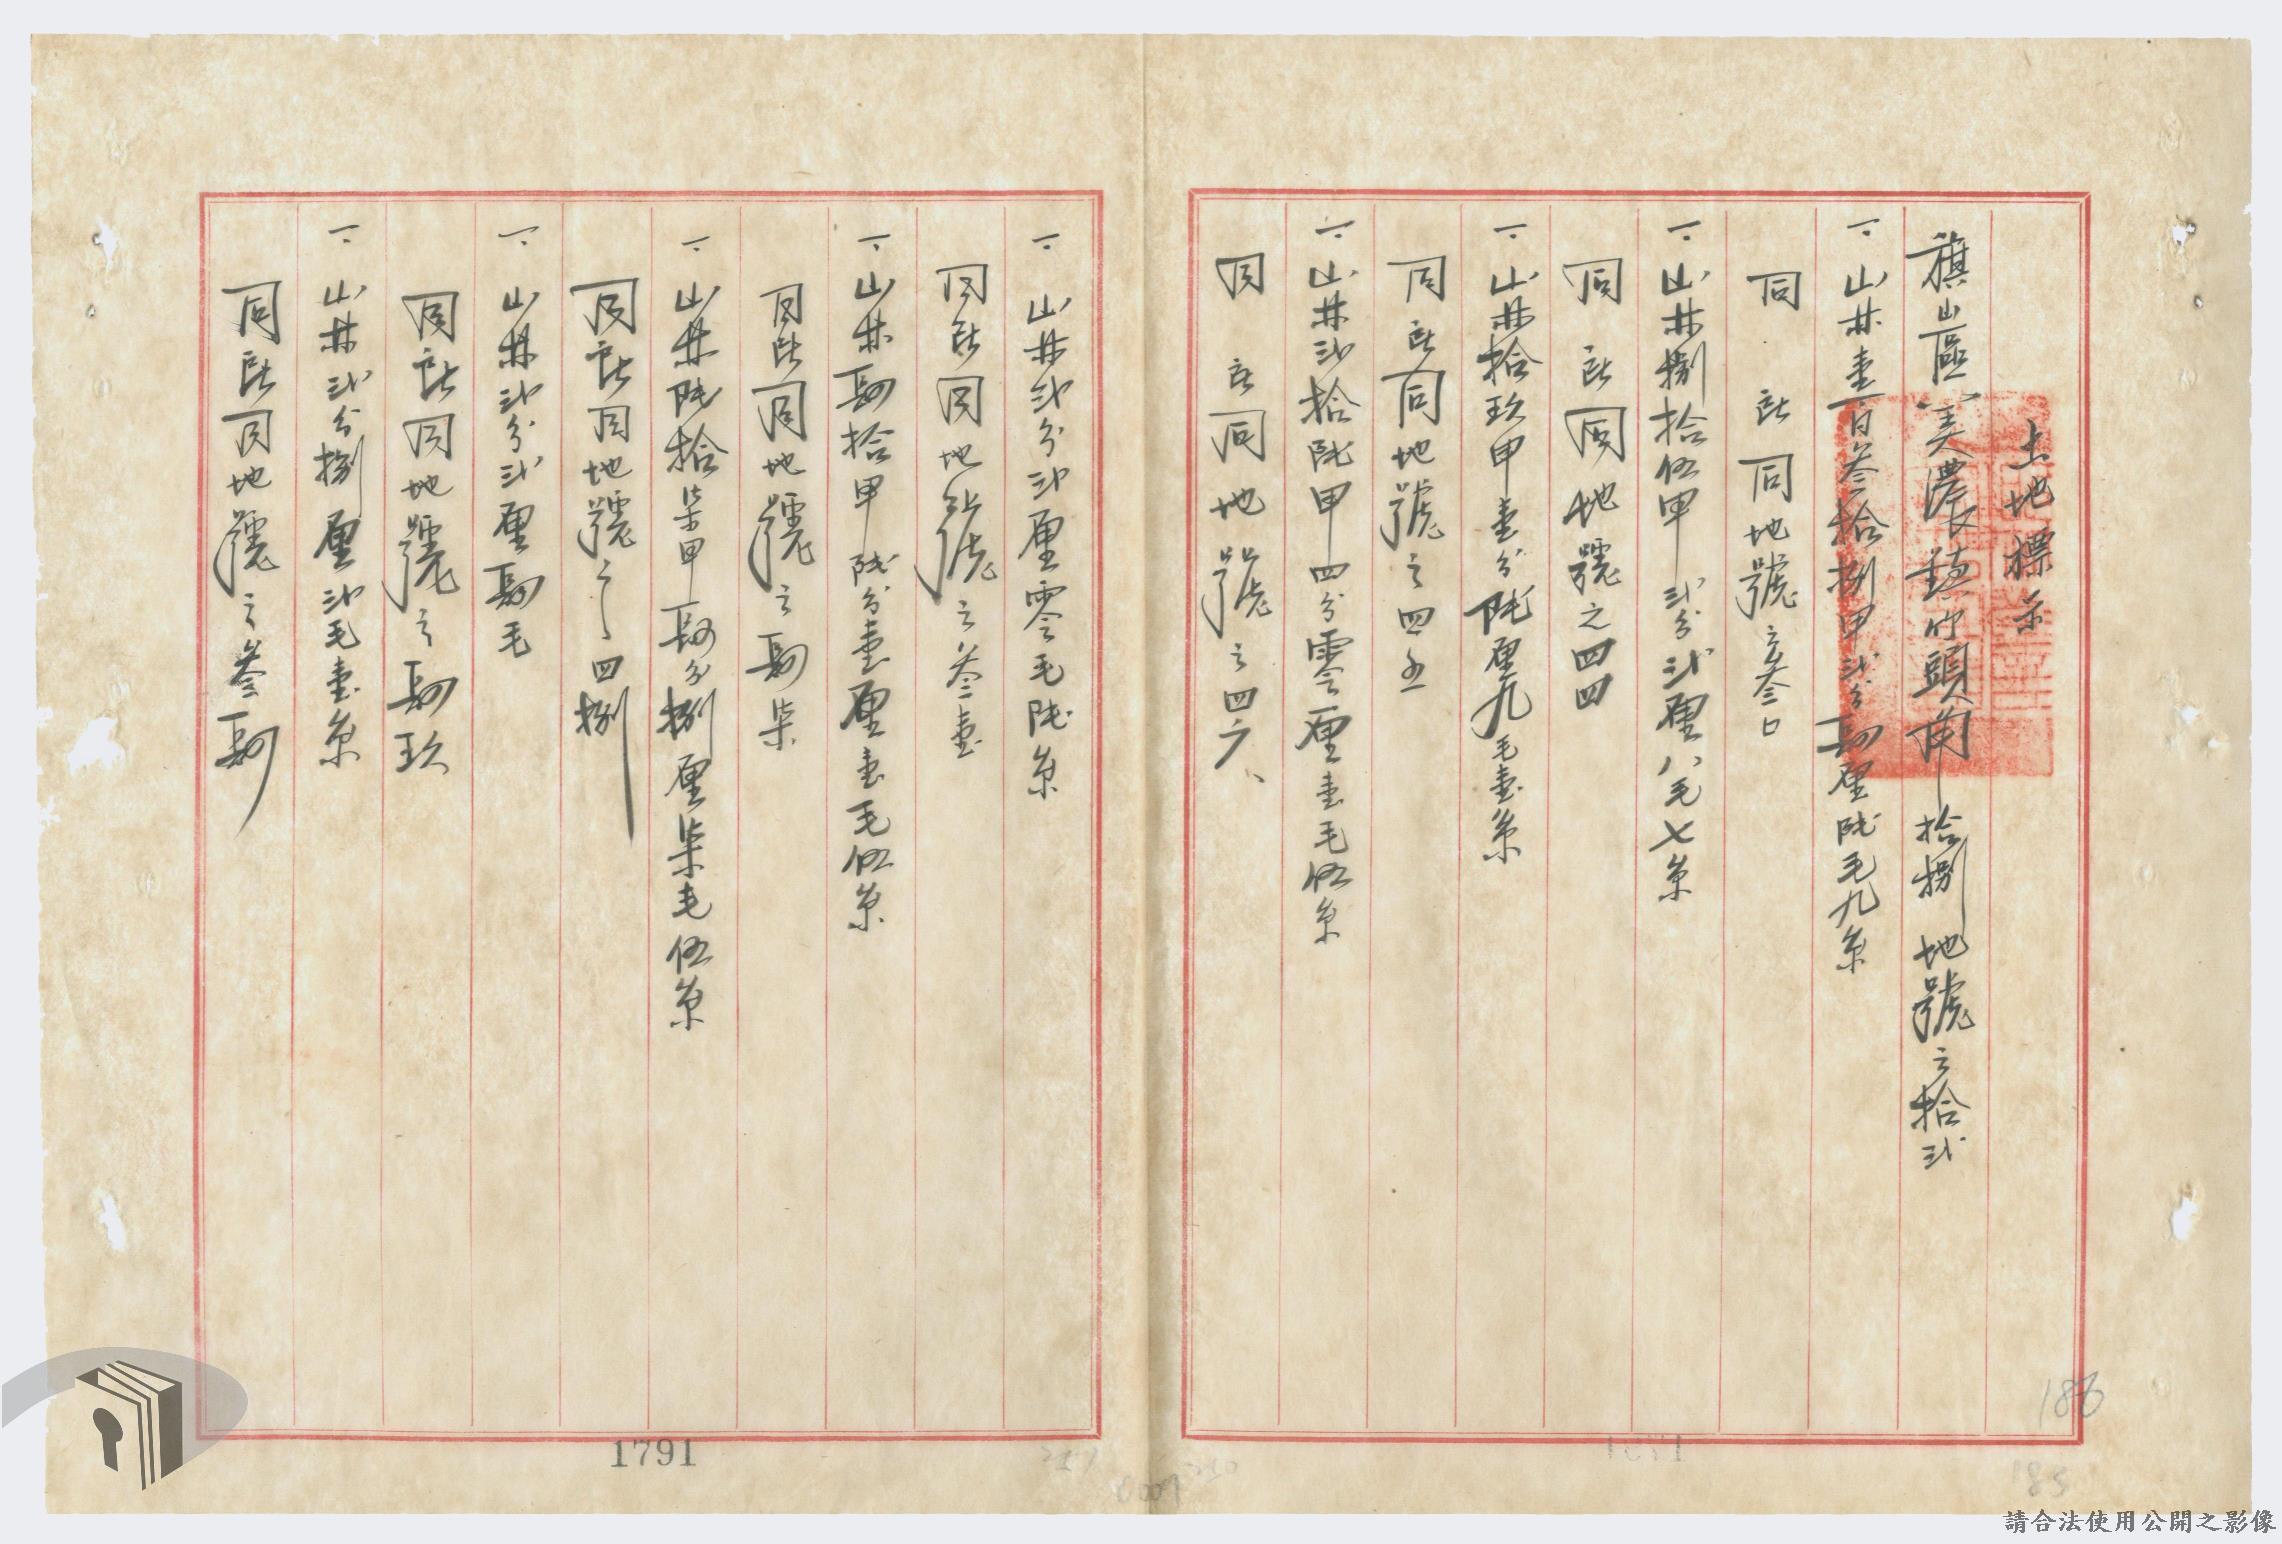 土地標示
旗山區美濃鎮竹頭角拾捌地號之拾弍
一、山林壹百叁拾捌甲弍分肆厘陸毛九糸
同所同地號之叁口
一、山林捌拾伍甲弍分弍厘八毛七糸
同所同地號之四四
一、山林拾玖甲壹分陸厘九毛壹糸
同所同地號之四五
一、山林弍拾陸甲四分零厘壹毛伍糸
同所同地號之四六
一、山林弍分弍厘零毛陸糸
同所同地號之叁壹
一、山林肆拾甲陸分壹厘壹毛伍糸
同所同地號之肆柒
一、山林陸拾柒甲肆分捌厘柒毛伍糸
同所同地號之四捌
一、山林弍分弍厘肆毛
同所同地號之肆玖
一、山林弍分捌厘弍毛壹糸
同所同地號之叁肆
186
1791
請合法使用公開之影像